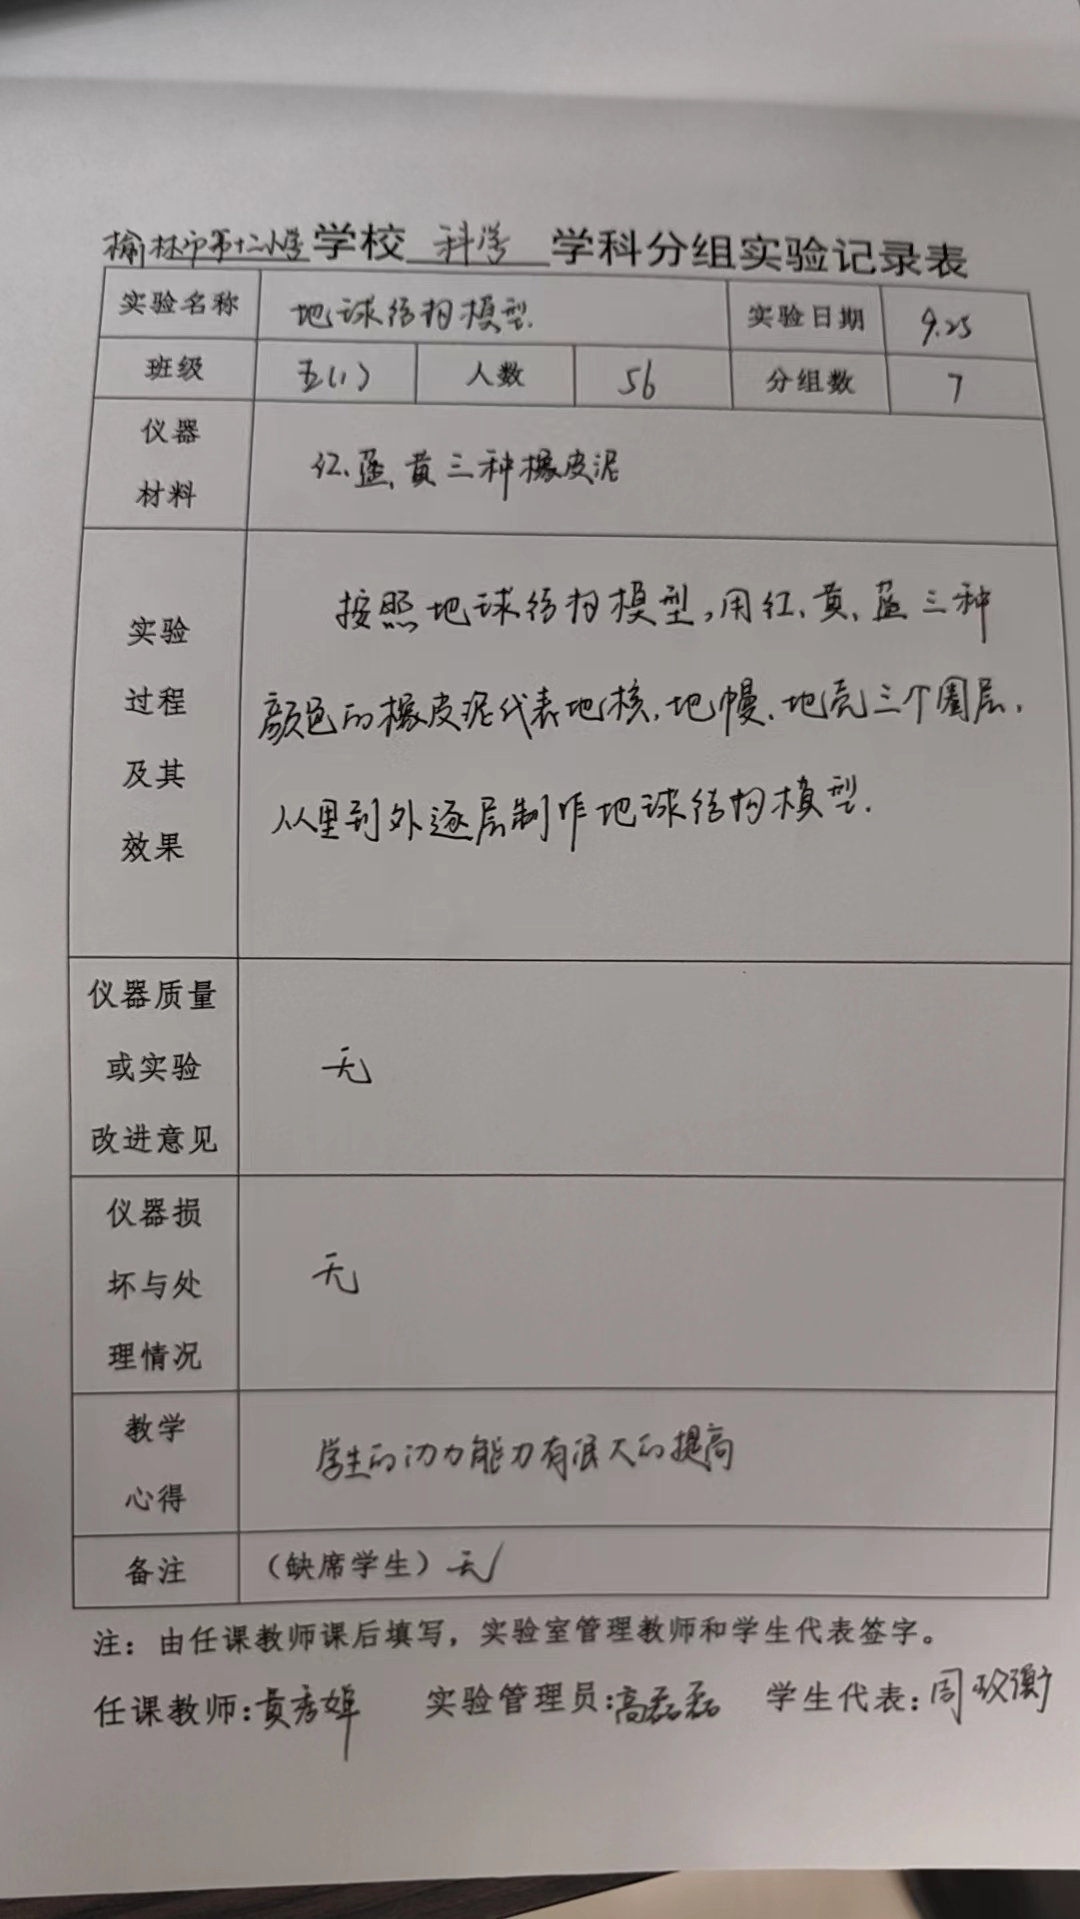 榆林市第十二小学学校 科学 学科分组实验记录表
实验名称 地球结构模型. 实验日期 9.25
班级 五(1) 人数 56 分组数 7
仪器
材料
红、蓝、黄三种橡皮泥
实验
过程
及其
效果
按照地球结构模型,用红、黄、蓝三种
颜色的橡皮泥代表地核、地幔、地壳三个圈层,
从里到外逐层制作地球结构模型.
仪器质量
或实验
改进意见
无
仪器损
坏与处
理情况
无
教学
心得
学生的动力能力有很大的提高
备注 (缺席学生)无
注：由任课教师课后填写，实验室管理教师和学生代表签字。
任课教师:黄秀婥 实验管理员:高磊磊 学生代表:周玫衡